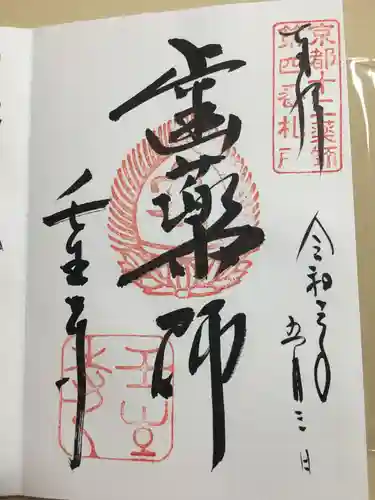 京都十二薬師
第四番札所
奉拝
令和
五月三日
歯薬師
壬生寺